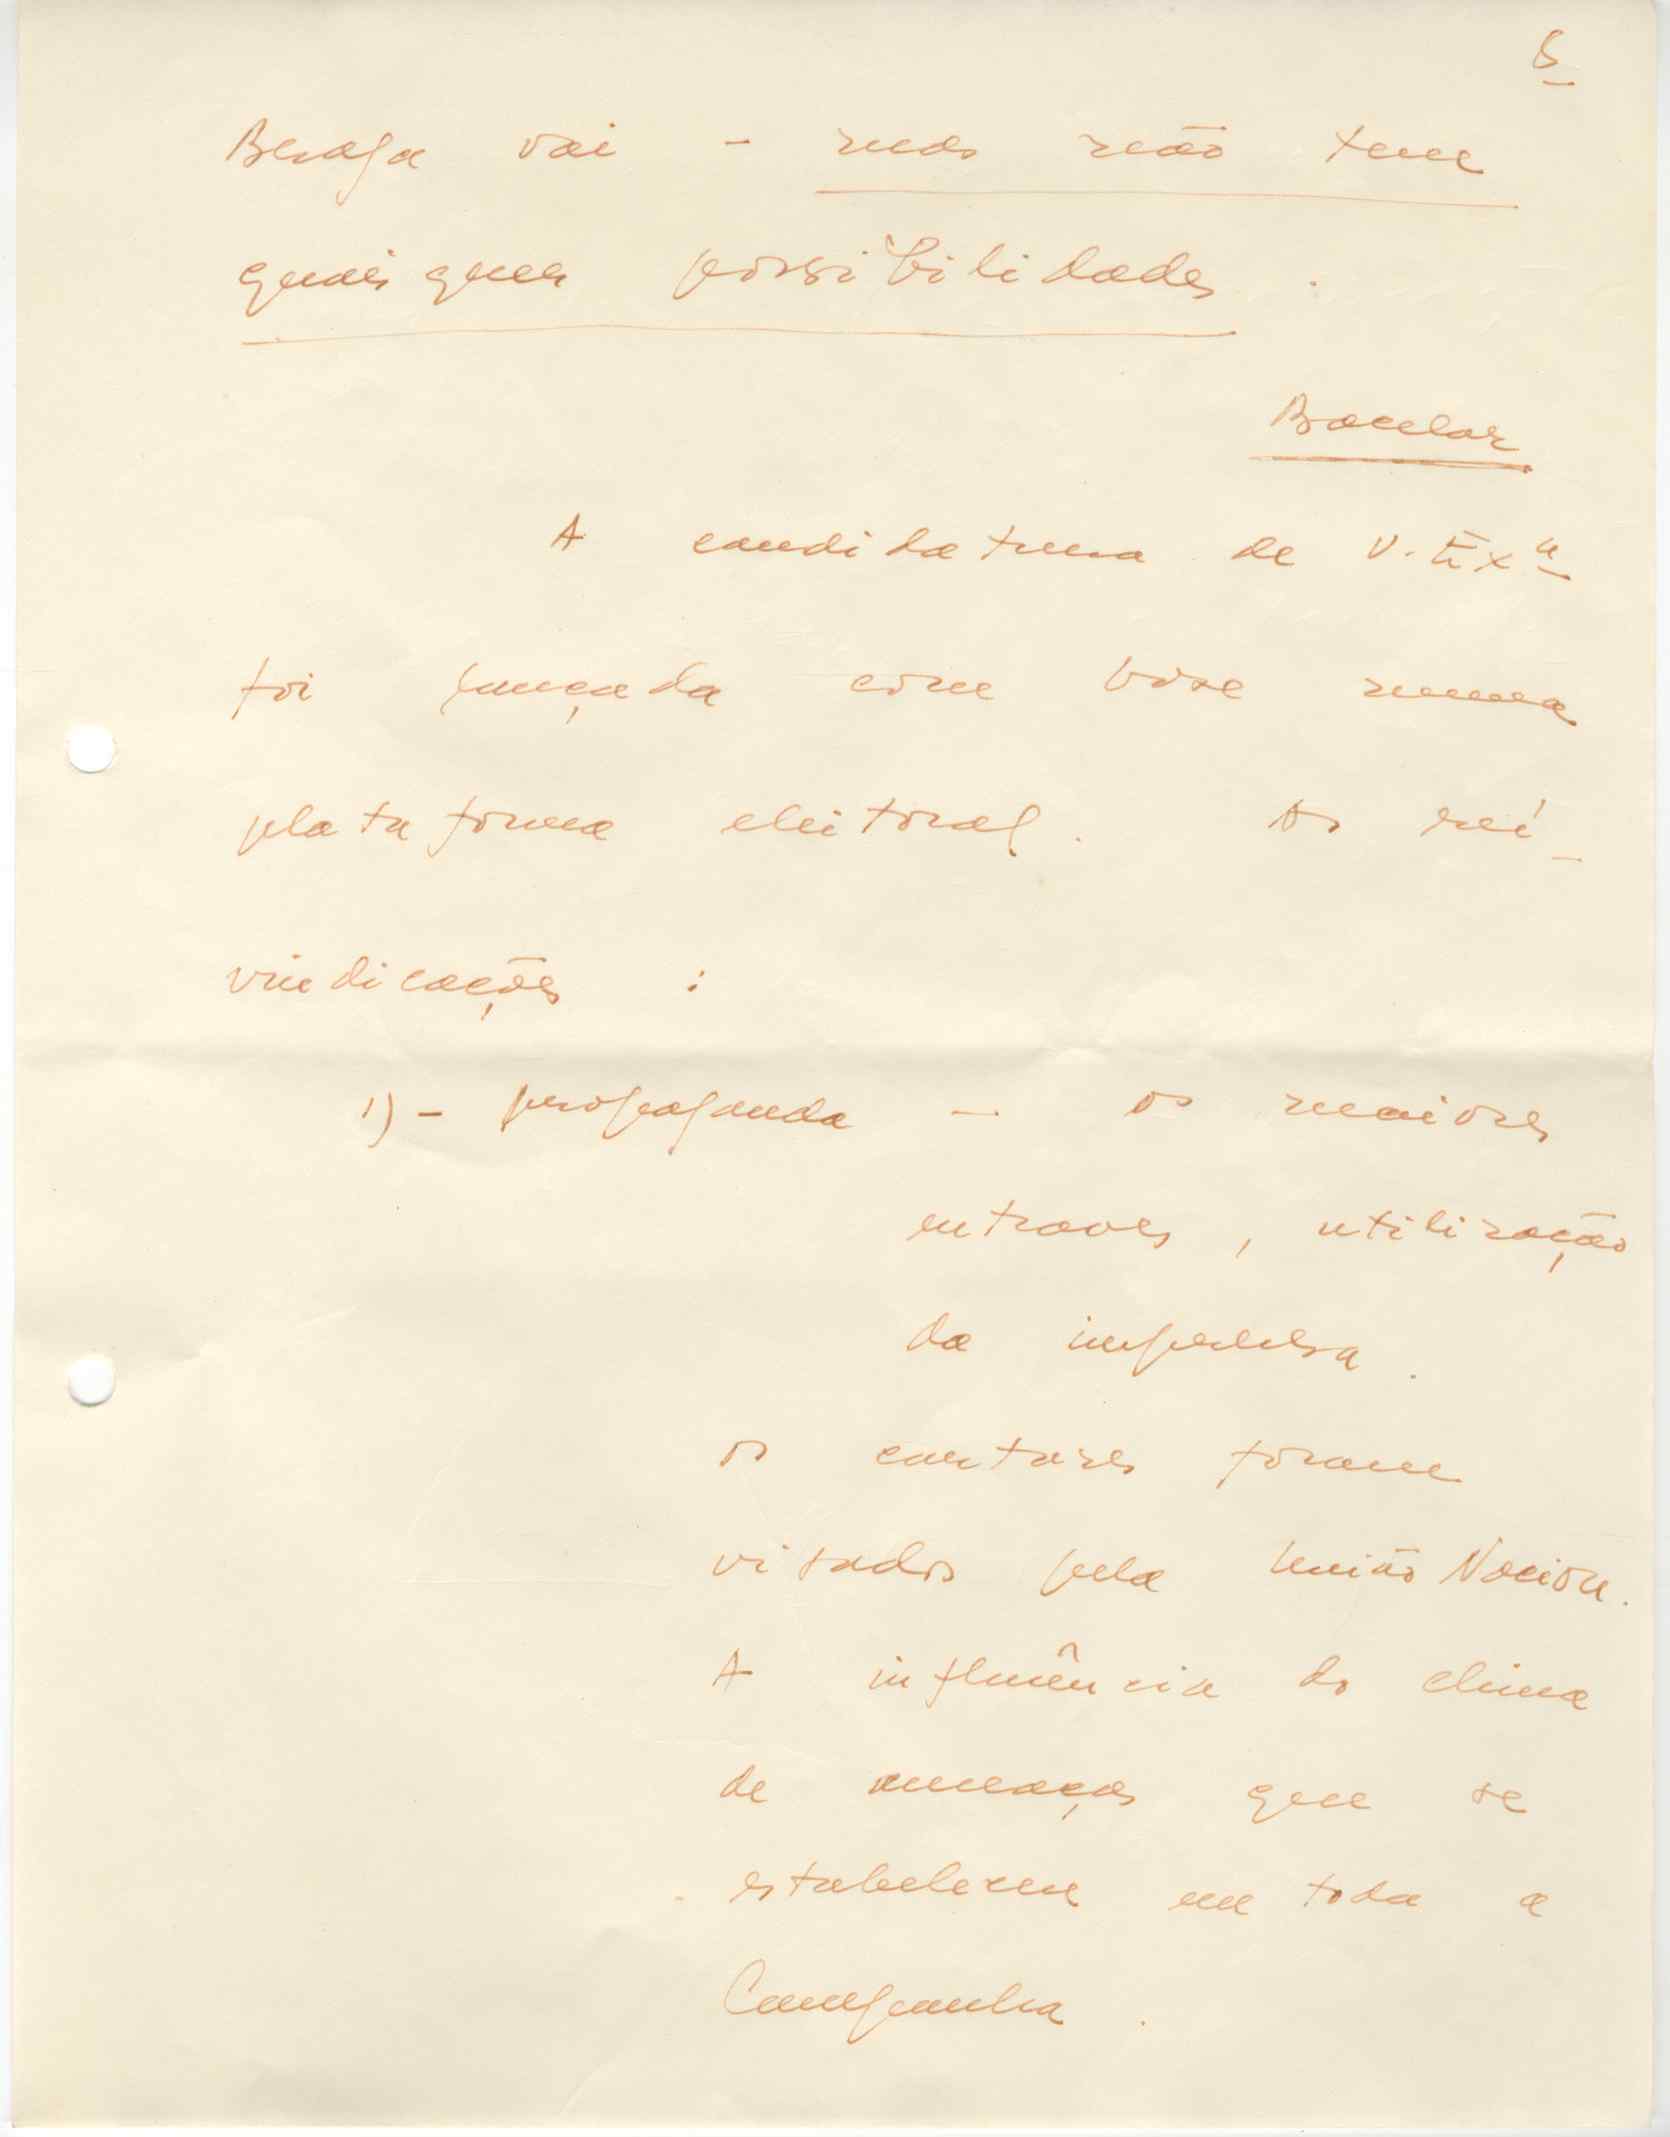 6
Braga vai - mas não tem
quaisquer possibilidades.
Bacelar
A candidatura de V. Exª
foi lançada com base numa
plataforma eleitoral. As rei-
vindicações:
1) - propaganda - os maiores
entraves, utilização
da imprensa.
os cartazes foram
visados pela União Nacion.
A influência do clima
de ameaças que se
estabeleceu em toda a
Campanha.